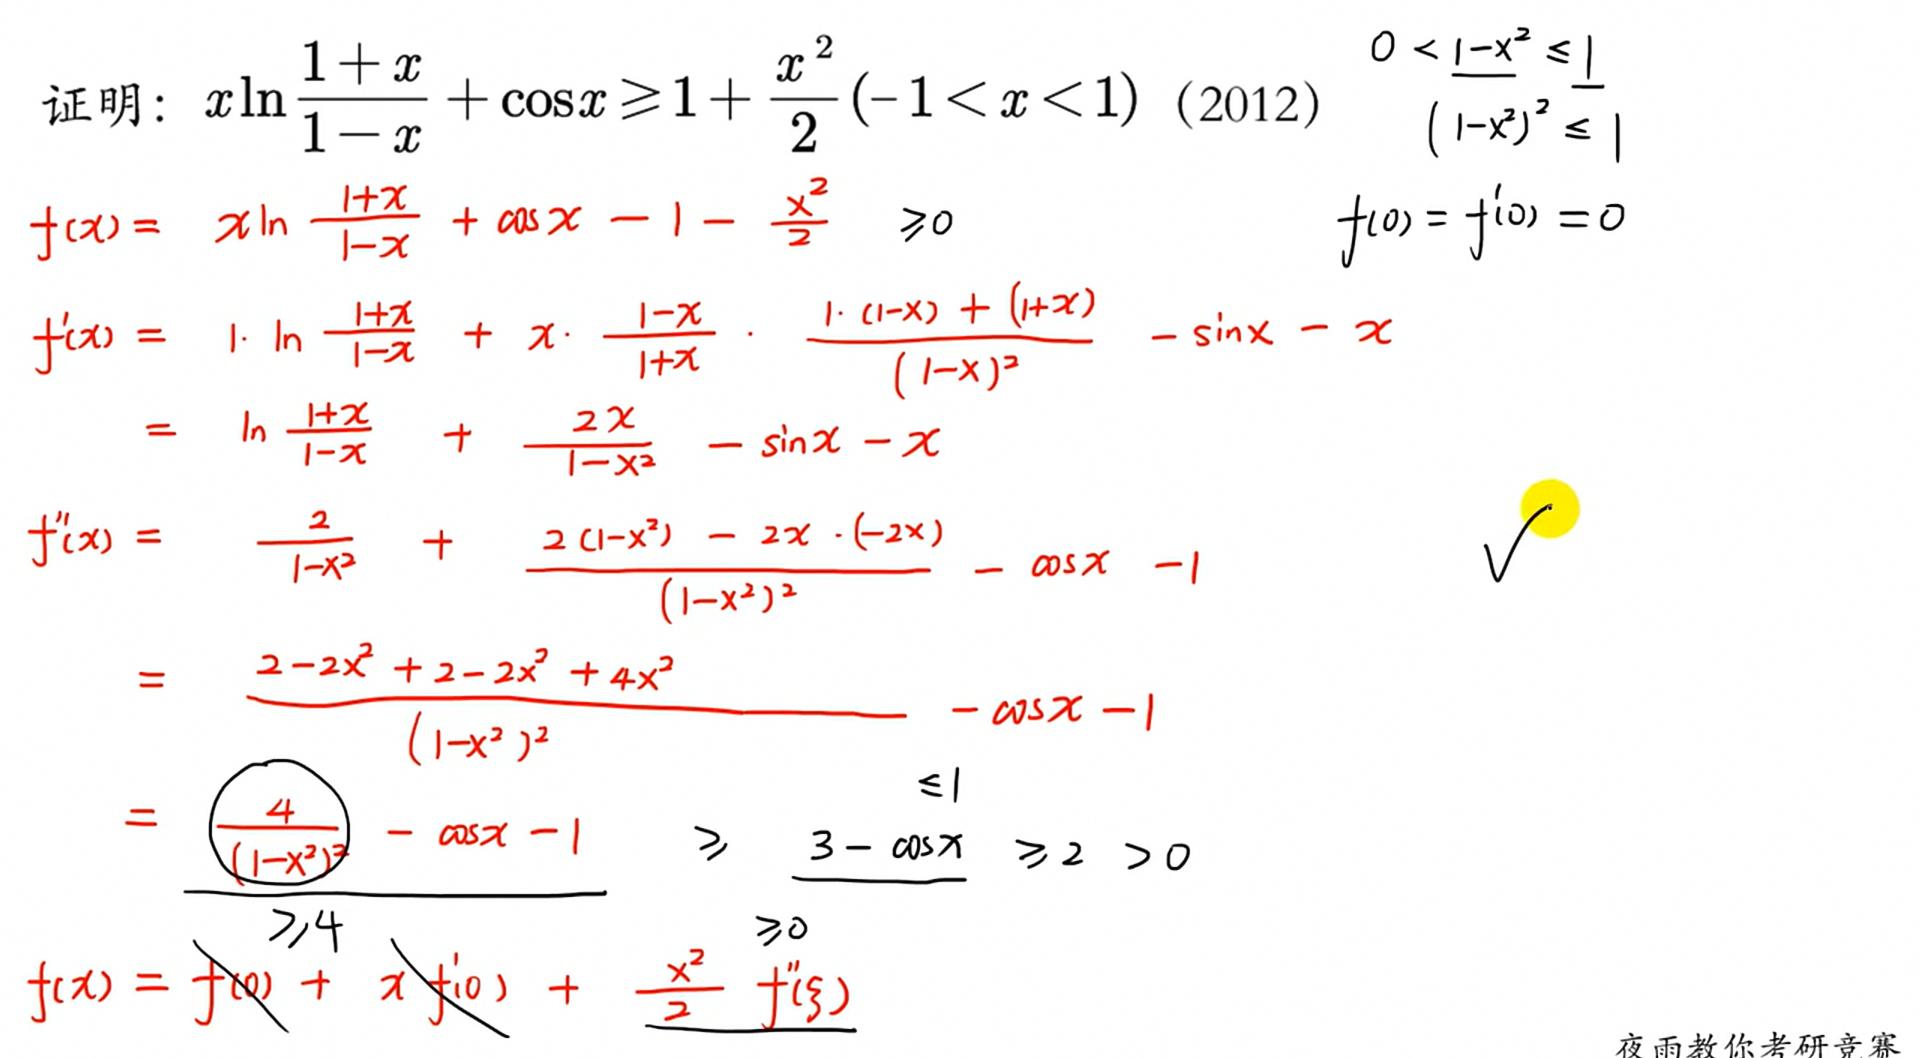 证明: x ln (1+x)/(1-x) + cos x ⩾ 1 + x²/2 (-1 < x < 1) (2012)
0 < 1-x² ≤ 1
(1-x²)² ≤ 1
f(x) = x ln (1+x)/(1-x) + cos x - 1 - x²/2 ⩾0
f(0) = f'(0) = 0
f'(x) = 1· ln (1+x)/(1-x) + x· (1-x)/(1+x) · (1·(1-x) + (1+x))/(1-x)² - sin x - x
= ln (1+x)/(1-x) + 2x/(1-x²) - sin x - x
f''(x) = 2/(1-x²) + (2(1-x²) - 2x·(-2x))/(1-x²)² - cos x - 1
= (2-2x²+2-2x²+4x²)/(1-x²)² - cos x - 1
≤1
= 4/(1-x²)² - cos x - 1 ⩾ 3 - cos x ⩾ 2 > 0
⩾4
⩾0
f(x) = f(0) + x f'(0) + x²/2 f''(ξ)
夜雨教你考研竞赛